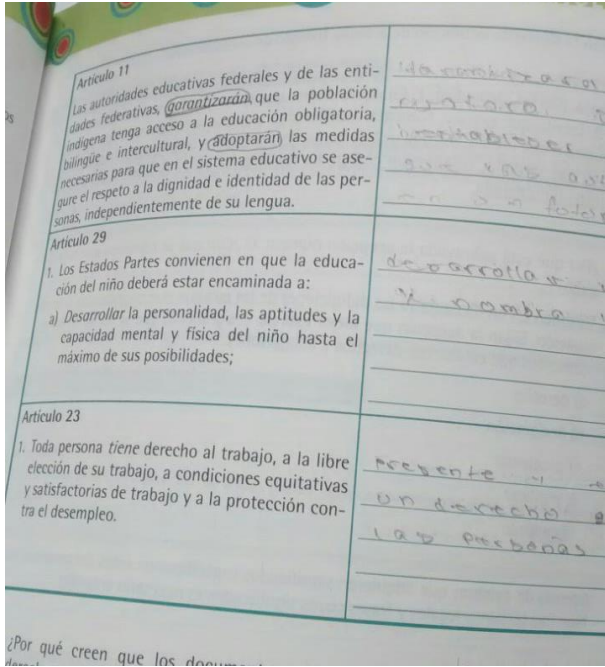 Artículo 11
Las autoridades educativas federales y de las enti-
dades federativas, garantizarán que la población
indígena tenga acceso a la educación obligatoria,
bilingüe e intercultural, y adoptarán las medidas
necesarias para que en el sistema educativo se ase-
gure el respeto a la dignidad e identidad de las per-
sonas, independientemente de su lengua.
Artículo 29
1. Los Estados Partes convienen en que la educa-
ción del niño deberá estar encaminada a:
desarrolla
a) Desarrollar la personalidad, las aptitudes y la
capacidad mental y física del niño hasta el
máximo de sus posibilidades;
y nombra
Artículo 23
1. Toda persona tiene derecho al trabajo, a la libre
elección de su trabajo, a condiciones equitativas
y satisfactorias de trabajo y a la protección con-
tra el desempleo.
presente y
un derecho
las personas
¿Por qué creen que los